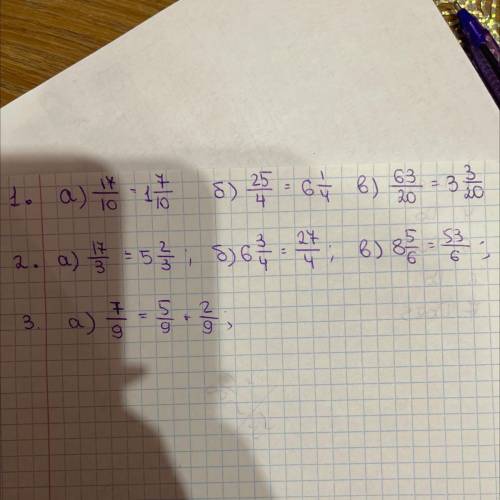 1. а) 17/10 = 1 7/10 б) 25/4 = 6 1/4 в) 63/20 = 3 3/20
2. а) 17/3 = 5 2/3; б) 6 3/4 = 27/4; в) 8 5/6 = 53/6;
3. а) 7/9 = 5/9 + 2/9;